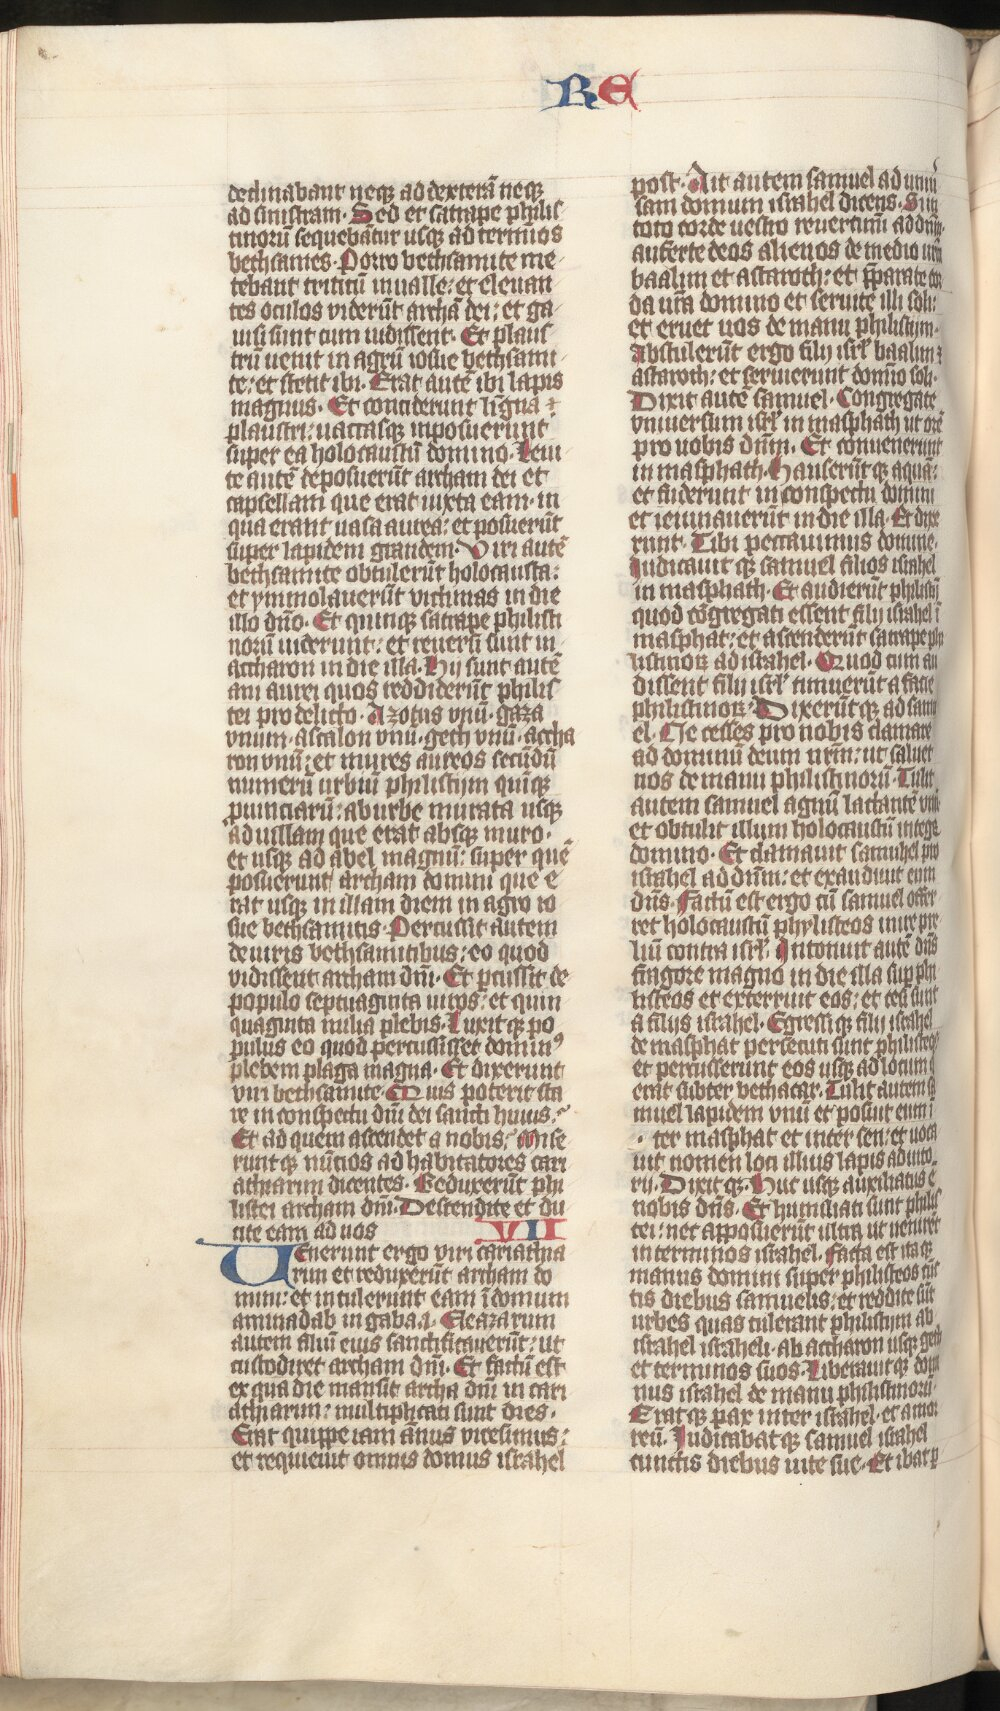 RE
declinabant neqz ad dexterā neqz
ad sinistram. Sed et satrape philis
tinorū sequebātur usqz ad terminos
bethsames. Porro bethsamite me
tebant triticū in ualle: et eleuan
tes oculos viderūt archā dei: et ga
uisi sunt cum uidissent. Et plaus
trū uenit in agrū iosue bethsami
te: et stetit ibi. Erat autē ibi lapis
magnus. Et conciderunt ligna
plaustri: uaccasqz inposuerunt
super ea holocaustū domino. Leui
te autē deposuerūt archam dei et
capsellam que erat iuxta eam. in
qua erant uasa aurea: et posuerūt
super lapidem grandem. Viri autē
bethsamite obtulerūt holocausta:
et ymmolauerūt victimas in die
illo dn̄o. Et quinqz satrape philisti
norū uiderunt: et reuersi sunt in
accharon in die illa. Hij sunt autē
ani aurei quos reddiderūt philis
tei pro delicto. Azotus vnū. gaza
vnum. ascalon vnū. geth vnū. accha
ron vnū: et mures aureos secūdū
numerū urbiū philistijm quīqz
puinciarū: ab urbe murata usqz
ad uillam que erat absqz muro.
et usqz ad abel magnū: super quē
posuerunt archam domini que e
rat usqz in illam diem in agro io
sue bethsamitis. Percussit autem
de uiris bethsamitibus: eo quod
vidissent archam dn̄i. Et pcussit de
populo septuaginta uiros: et quin
quaginta milia plebis. Luxitqz po
pulus eo quod percussisset domin9
plebem plaga magna. Et dixerunt
viri bethsamite. Quis poterit sta
re in conspectu dn̄i dei sancti huius.
Et ad quem ascendet a nobis. Mise
runtqz nūcios ad habitatores cari
athiarim dicentes. Reduxerūt phi
listei archam dn̄i. Descendite et du
cite eam ad uos VII
Uenerunt ergo viri cariathia
rim et reduxerūt archam do
mini: et intulerunt eam ī domum
aminadab in gabaa. Eleazarum
autem filiū eius sanctificauerūt: ut
custodiret archam dn̄i. Et factū est
ex qua die mansit archa dn̄i in cari
athiarim: multiplicati sunt dies.
Erat quippe iam ānus vicesimus:
et requieuit omnis domus israhel
post. Ait autem samuel ad uniu
sam domum israhel dicens. Si in
toto corde uestro reuertimī ad dn̄m.
auferte deos alienos de medio
baalim et astaroth: et pparate cor
da vr̄a domino et seruite illi soli:
et eruet uos de manu philistijm.
Abstulerūt ergo filij isrl baalim
astaroth: et seruierunt domīo soli.
Dixit autē samuel. Congregate
vniuersum isrl in masphath ut orē
pro uobis dn̄m. Et conuenerunt
in masphath. Hauserūtqz aquā:
et fuderunt in conspectu domini
et ieiunauerūt in die illa. Et dixe
runt. Tibi peccauimus domine.
Iudicauitqz samuel filios israhel
in masphath. Et audierūt philistij
quod cōgregati essent filij israhel ī
masphat: et ascenderūt satrape phi
listinorū ad israhel. Quod cum au
dissent filij isrl timuerūt a facie
philistinorū. Dixerūtqz ad samu
el. Ne cesses pro nobis clamare
ad dominū deum nr̄m: ut saluet
nos de manu philistinorū. Tulit
autem samuel agnū lactantē
et obtulit illum holocaustū integrū
domino. Et clamauit samuhel pro
israhel ad dn̄m: et exaudiuit eum
dn̄s. Factū est ergo cū samuel offer
ret holocaustū phylisteos inire pre
liū contra isrl. Intonuit autē dn̄s
fragore magno in die illa sup phi
listeos et exterruit eos: et cesi sunt
a filijs israhel. Egressiqz filij israhel
de masphat persecuti sunt philisteos
et percusserunt eos usqz ad locum q
erat subter bethacar. Tulit autem sa
muel lapidem vnū et posuit eum ī
ter masphat et inter sen: et uoca
uit nomen loci illius lapis adiuto
rij. Dixitqz. Huc usqz auxiliatus ē
nobis dn̄s. Et humiliati sunt philis
tei: nec apposuerūt ultra ut uenirēt
in terminos israhel. Facta est itaqz
manus domini super philisteos cūc
tis diebus samuelis: et reddite sūt
urbes quas tulerant philistijm ab
israhel israheli. ab accharon usqz geth
et terminos suos. Liberauitqz domi
nus israhel de manu philistinorū.
Eratqz pax inter israhel. et amor
reū. Iudicabatqz samuel israhel
cunctis diebus uite sue. Et ibat p